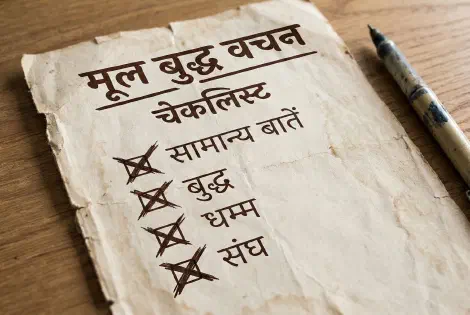 मूल बुद्ध वचन
चेकलिस्ट
सामान्य बातें
बुद्ध
धम्म
संघ